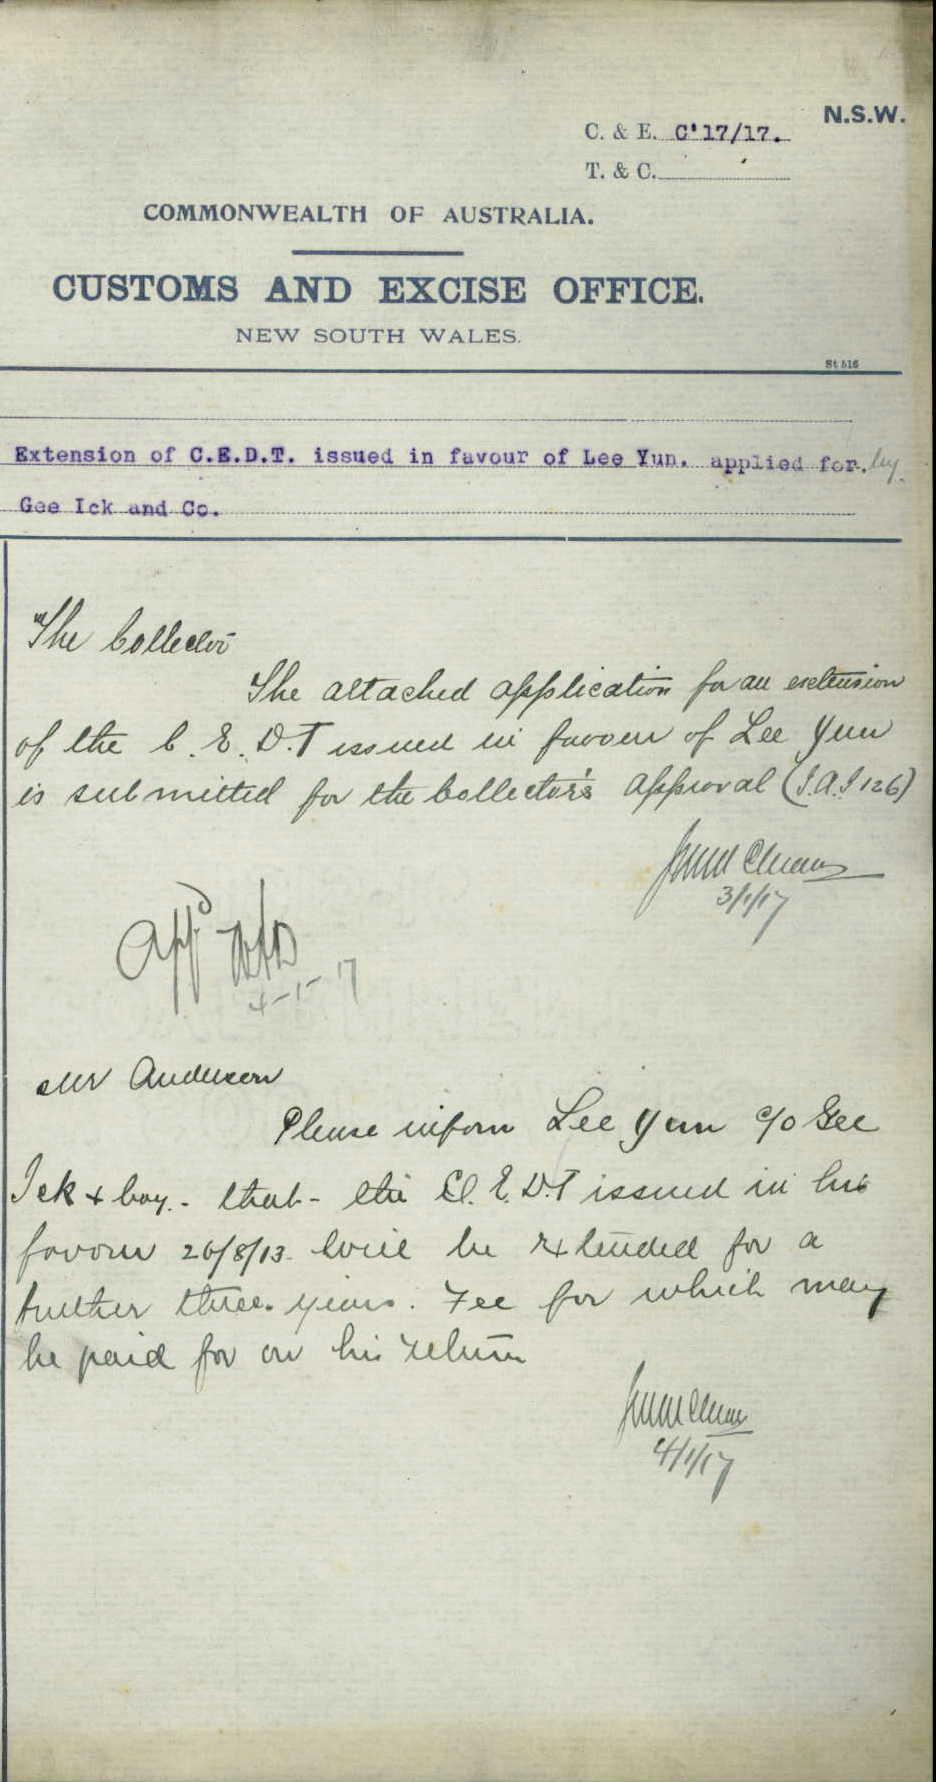 N.S.W.
C. & E. C'17/17.
T. & C.
COMMONWEALTH OF AUSTRALIA.
CUSTOMS AND EXCISE OFFICE.
NEW SOUTH WALES.
St 516
Extension of C.E.D.T. issued in favour of Lee Yun. applied for. by.
Gee Ick and Co.
The Collector
The attached application for an extension
of the C.E.D.T issued in favour of Lee Yun
is submitted for the Collector's approval (I.A.I 126)
3/1/17
App'd
4-1-17
Mr Anderson
Please inform Lee Yum c/o Gee
Ick & Coy. - that - the C.E.D.T issued in his
favour 26/8/13 will be extended for a
further three years. Fee for which may
be paid for on his return
4/1/17